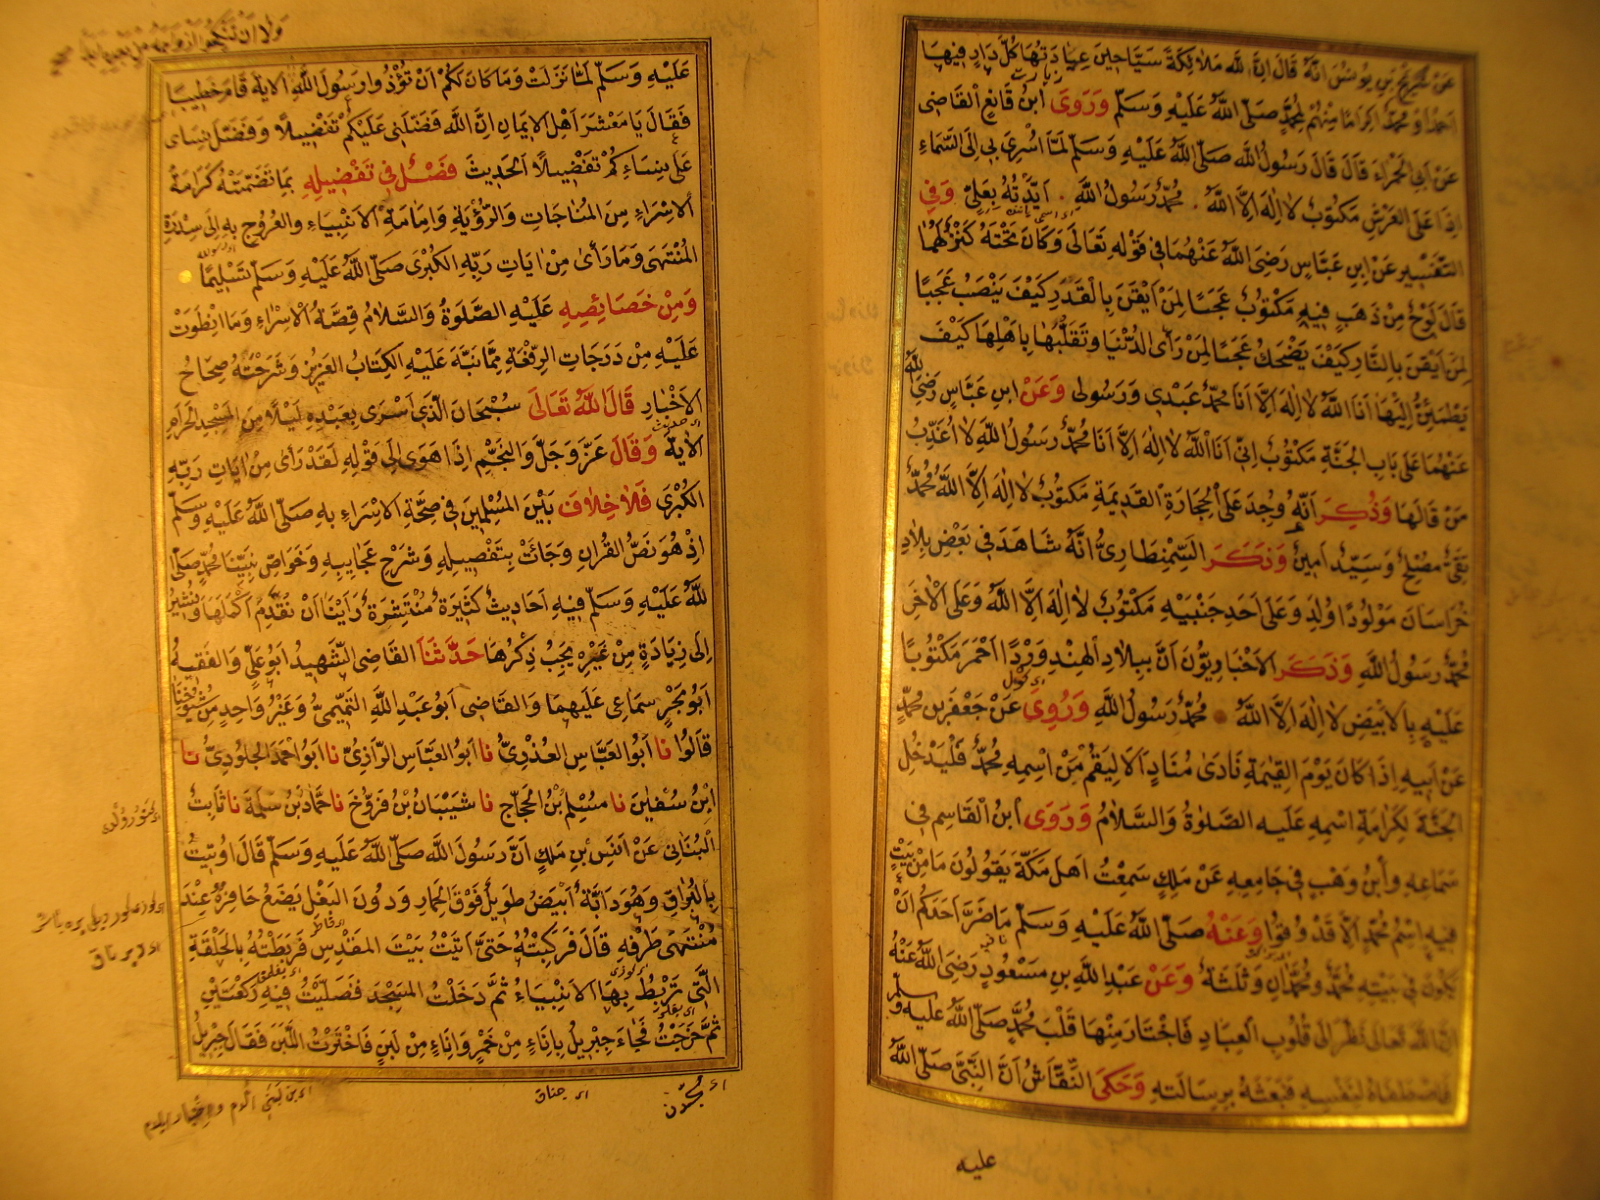 عَنْ سُرَيْجِ بْنِ يُونُسَ اَنَّهُ قَالَ اِنَّ لِلّٰهِ مَلَائِكَةً سَيَّاحِينَ عِيَادَتُهَا كُلَّ دَارٍ فِيهَا
اَحْمَدُ اَوْ مُحَمَّدٌ اِكْرَامًا مِنْهُمْ لِمُحَمَّدٍ صَلَّى اللّٰهُ عَلَيْهِ وَسَلَّمَ وَرَوَى ابْنُ قَانِعٍ الْقَاضِى
عَنْ اَبِى الْحَمْرَاءِ قَالَ قَالَ رَسُولُ اللّٰهِ صَلَّى اللّٰهُ عَلَيْهِ وَسَلَّمَ لَمَّا اُسْرِىَ بِى اِلَى السَّمَاءِ
اِذَا عَلَى الْعَرْشِ مَكْتُوبٌ لَا اِلٰهَ اِلَّا اللّٰهُ مُحَمَّدٌ رَسُولُ اللّٰهِ اَيَّدْتُهُ بِعَلِىٍّ وَفِى
التَّفْسِيرِ عَنِ ابْنِ عَبَّاسٍ رَضِىَ اللّٰهُ عَنْهُمَا فِى قَوْلِهِ تَعَالَى وَكَانَ تَحْتَهُ كَنْزٌ لَهُمَا
قَالَ لَوْحٌ مِنْ ذَهَبٍ فِيهِ مَكْتُوبٌ عَجَبًا لِمَنْ اَيْقَنَ بِالْقَدَرِ كَيْفَ يَنْصَبُ عَجَبًا
لِمَنْ اَيْقَنَ بِالنَّارِ كَيْفَ يَضْحَكُ عَجَبًا لِمَنْ رَأَى الدُّنْيَا وَتَقَلُّبَهَا بِاَهْلِهَا كَيْفَ
يَطْمَئِنُّ اِلَيْهَا اَنَا اللّٰهُ لَا اِلٰهَ اِلَّا اَنَا مُحَمَّدٌ عَبْدِى وَرَسُولِى وَعَنِ ابْنِ عَبَّاسٍ رَضِىَ اللّٰهُ
عَنْهُمَا عَلَى بَابِ الْجَنَّةِ مَكْتُوبٌ اِنِّى اَنَا اللّٰهُ لَا اِلٰهَ اِلَّا اَنَا مُحَمَّدٌ رَسُولُ اللّٰهِ لَا اُعَذِّبُ
مَنْ قَالَهَا وَذُكِرَ اَنَّهُ وُجِدَ عَلَى الْحِجَارَةِ الْقَدِيمَةِ مَكْتُوبٌ لَا اِلٰهَ اِلَّا اللّٰهُ مُحَمَّدٌ
تَقِىٌّ مُصْلِحٌ وَسَيِّدٌ اَمِينٌ وَذَكَرَ السِّمِنْطَارِىُّ اَنَّهُ شَاهَدَ فِى بَعْضِ بِلَادِ
خُرَاسَانَ مَوْلُودًا وُلِدَ وَعَلَى اَحَدِ جَنْبَيْهِ مَكْتُوبٌ لَا اِلٰهَ اِلَّا اللّٰهُ وَعَلَى الْاٰخَرِ
مُحَمَّدٌ رَسُولُ اللّٰهِ وَذَكَرَ الْاَخْبَارِيُّونَ اَنَّ بِبِلَادِ الْهِنْدِ وَرْدًا اَحْمَرَ مَكْتُوبًا
عَلَيْهِ بِالْاَبْيَضِ لَا اِلٰهَ اِلَّا اللّٰهُ مُحَمَّدٌ رَسُولُ اللّٰهِ وَرُوِىَ عَنْ جَعْفَرِ بْنِ مُحَمَّدٍ
عَنْ اَبِيهِ اِذَا كَانَ يَوْمُ الْقِيٰمَةِ نَادَى مُنَادٍ اَلَا لِيَقُمْ مَنِ اسْمُهُ مُحَمَّدٌ فَلْيَدْخُلِ
الْجَنَّةَ لِكَرَامَةِ اسْمِهِ عَلَيْهِ الصَّلٰوةُ وَالسَّلَامُ وَرَوَى ابْنُ الْقَاسِمِ فِى
سَمَاعِهِ وَابْنُ وَهْبٍ فِى جَامِعِهِ عَنْ مٰلِكٍ سَمِعْتُ اَهْلَ مَكَّةَ يَقُولُونَ مَا مِنْ بَيْتٍ
فِيهِ اِسْمُ مُحَمَّدٍ اِلَّا قَدْ وُقُوا وَعَنْهُ صَلَّى اللّٰهُ عَلَيْهِ وَسَلَّمَ مَا ضَرَّ اَحَدَكُمْ اَنْ
يَكُونَ فِى بَيْتِهِ مُحَمَّدٌ وَمُحَمَّدَانِ وَثَلٰثَةٌ وَعَنْ عَبْدِ اللّٰهِ بْنِ مَسْعُودٍ رَضِىَ اللّٰهُ عَنْهُ
اِنَّ اللّٰهَ تَعَالَى نَظَرَ اِلَى قُلُوبِ الْعِبَادِ فَاخْتَارَ مِنْهَا قَلْبَ مُحَمَّدٍ صَلَّى اللّٰهُ عَلَيْهِ وَسَلَّمَ
فَاصْطَفَاهُ لِنَفْسِهِ فَبَعَثَهُ بِرِسَالَتِهِ وَحَكَى النَّقَّاشُ اَنَّ النَّبِىَّ صَلَّى اللّٰهُ
عليه
وَلَا اَنْ تَنْكِحُوا اَزْوَاجَهُ مِنْ بَعْدِهِ اَبَدًا
عَلَيْهِ وَسَلَّمَ لَمَّا نَزَلَتْ وَمَا كَانَ لَكُمْ اَنْ تُؤْذُوا رَسُولَ اللّٰهِ الْاٰيَةَ قَامَ خَطِيبًا
فَقَالَ يَا مَعْشَرَ اَهْلِ الْاِيمَانِ اِنَّ اللّٰهَ فَضَّلَنِى عَلَيْكُمْ تَفْضِيلًا وَفَضَّلَ نِسَاىِ
عَلَى نِسَاءِكُمْ تَفْضِيلًا الْحَدِيثَ فَصْلٌ فِى تَفْضِيلِهِ بِمَا تَضَمَّنَتْهُ كَرَامَةُ
الْاِسْرَاءِ مِنَ الْمُنَاجَاتِ وَالرُّؤْيَةِ وَاِمَامَةِ الْاَنْبِيَاءِ وَالْعُرُوجِ بِهِ اِلَى سِدْرَةِ
الْمُنْتَهَى وَمَا رَأَى مِنْ اٰيَاتِ رَبِّهِ الْكُبْرَى صَلَّى اللّٰهُ عَلَيْهِ وَسَلَّمَ تَسْلِيمًا
وَمِنْ خَصَائِصِهِ عَلَيْهِ الصَّلٰوةُ وَالسَّلَامُ قِصَّةُ الْاِسْرَاءِ وَمَا انْطَوَتْ
عَلَيْهِ مِنْ دَرَجَاتِ الرِّفْعَةِ مِمَّا نَبَّهَ عَلَيْهِ الْكِتَابُ الْعَزِيزُ وَشَرَحَتْهُ صِحَاحُ
الْاَخْبَارِ قَالَ اللّٰهُ تَعَالَى سُبْحَانَ الَّذِى اَسْرَى بِعَبْدِهِ لَيْلًا مِنَ الْمَسْجِدِ الْحَرَامِ
الْاٰيَةَ وَقَالَ عَزَّ وَجَلَّ وَالنَّجْمِ اِذَا هَوَى اِلَى قَوْلِهِ لَقَدْ رَأَى مِنْ اٰيَاتِ رَبِّهِ
الْكُبْرَى فَلَا خِلَافَ بَيْنَ الْمُسْلِمِينَ فِى صِحَّةِ الْاِسْرَاءِ بِهِ صَلَّى اللّٰهُ عَلَيْهِ وَسَلَّمَ
اِذْ هُوَ نَصُّ الْقُرْاٰنِ وَجَاءَتْ بِتَفْصِيلِهِ وَشَرْحِ عَجَايِبِهِ وَخَوَاصِّ نَبِيِّنَا مُحَمَّدٍ صَلَّى
اللّٰهُ عَلَيْهِ وَسَلَّمَ فِيهِ اَحَادِيثُ كَثِيرَةٌ مُنْتَشِرَةٌ رَاَيْنَا اَنْ نُقَدِّمَ اَكْمَلَهَا وَنُشِيرَ
اِلَى زِيَادَةٍ مِنْ غَيْرِهِ يَجِبُ ذِكْرُهَا حَدَّثَنَا الْقَاضِى الشَّهِيدُ اَبُو عَلِىٍّ وَالْفَقِيهُ
اَبُو بَحْرٍ سَمَاعِى عَلَيْهِمَا وَالْقَاضِى اَبُو عَبْدِ اللّٰهِ التَّمِيمِىُّ وَغَيْرُ وَاحِدٍ مِنْ شُيُوخِنَا
قَالُوا نَا اَبُو الْعَبَّاسِ الْعُذْرِىُّ نَا اَبُو الْعَبَّاسِ الرَّازِىُّ نَا اَبُو اَحْمَدَ الْجُلُودِىُّ نَا
ابْنُ سُفْيٰنَ نَا مُسْلِمُ بْنُ الْحَجَّاجِ نَا شَيْبَانُ بْنُ فَرُّوخَ نَا حَمَّادُ بْنُ سَلَمَةَ نَا ثَابِتٌ
الْبُنَانِى عَنْ اَنَسِ بْنِ مٰلِكٍ اَنَّ رَسُولَ اللّٰهِ صَلَّى اللّٰهُ عَلَيْهِ وَسَلَّمَ قَالَ اُوتِيتُ
بِالْبُرَاقِ وَهُوَ دَابَّةٌ اَبْيَضُ طَوِيلٌ فَوْقَ الْحِمَارِ وَدُونَ الْبَغْلِ يَضَعُ حَافِرَهُ عِنْدَ
مُنْتَهَى طَرْفِهِ قَالَ فَرَكِبْتُهُ حَتَّى اَتَيْتُ بَيْتَ الْمَقْدِسِ فَرَبَطْتُهُ بِالْحَلْقَةِ
الَّتِى تَرْبِطُ بِهَا الْاَنْبِيَاءُ ثُمَّ دَخَلْتُ الْمَسْجِدَ فَصَلَّيْتُ فِيهِ رَكْعَتَيْنِ
ثُمَّ خَرَجْتُ فَجَاءَ جِبْرِيلُ بِاِنَاءٍ مِنْ خَمْرٍ وَاِنَاءٍ مِنْ لَبَنٍ فَاخْتَرْتُ اللَّبَنَ فَقَالَ جِبْرِيلُ